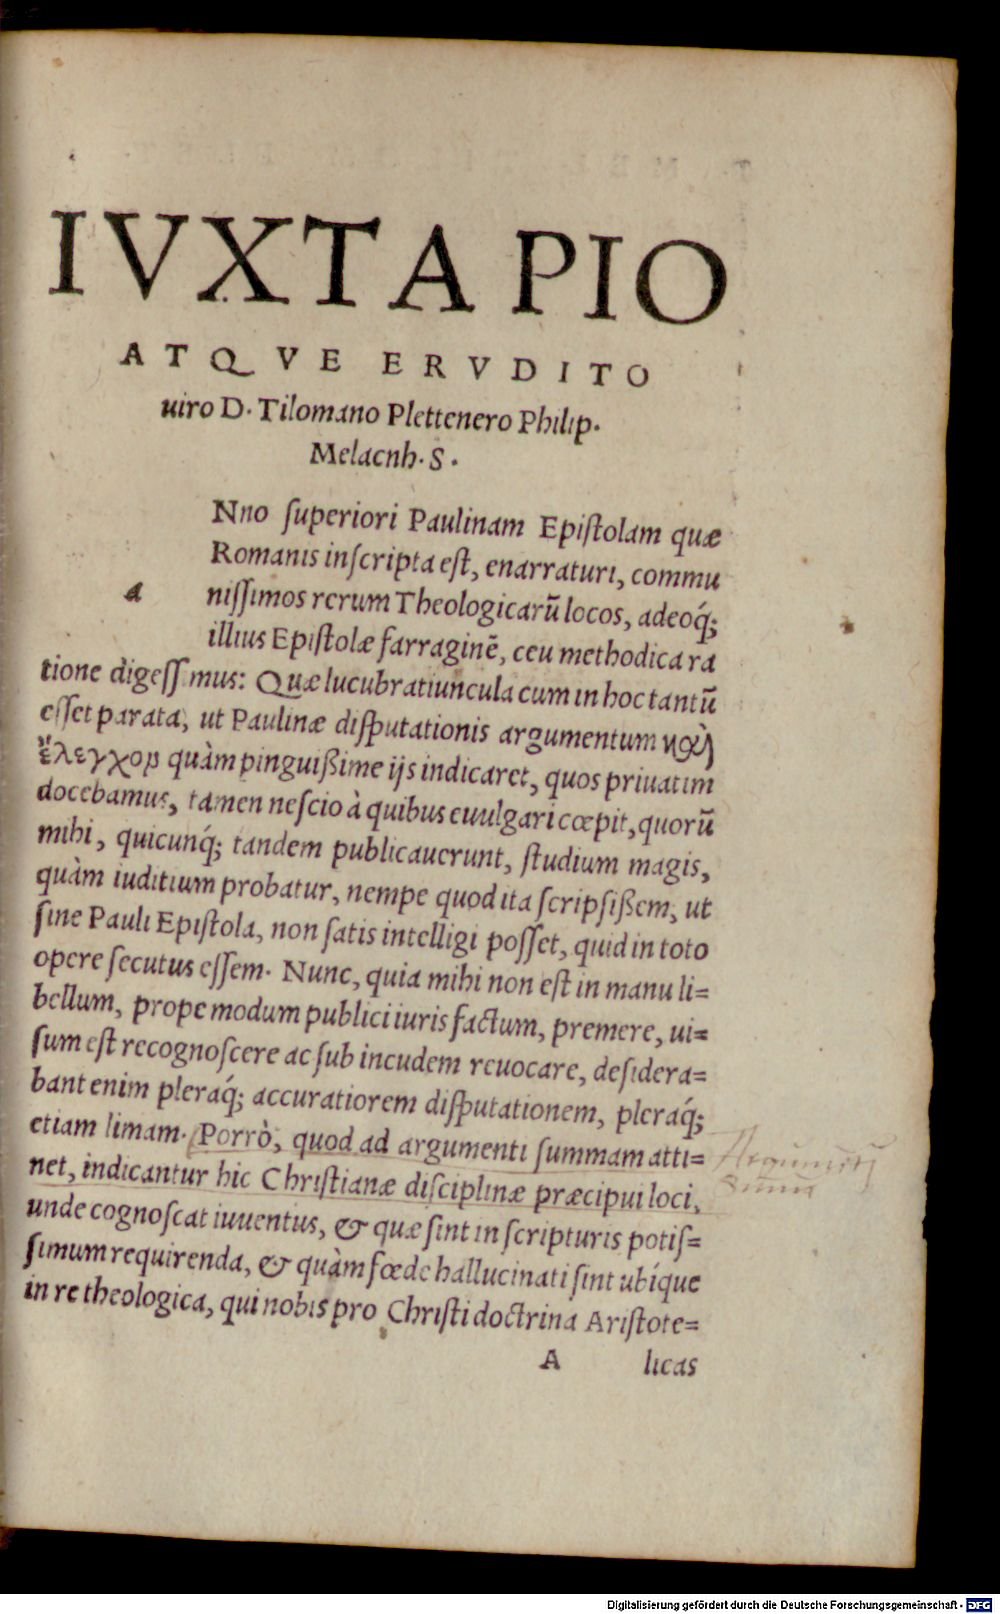 IVXTA PIO
ATQVE ERVDITO
uiro D. Tilomano Plettenero Philip.
Melacnh. S.
Nno ſuperiori Paulinam Epiſtolam quæ
Romanis inſcripta eſt, enarraturi, commu
a niſſimos rerum Theologicarū locos, adeoq́;
illius Epiſtolæ farraginē, ceu methodica ra
tione digeſſimus: Quæ lucubratiuncula cum in hoc tantū
eſſet parata, ut Paulinæ diſputationis argumentum καὶ
ἔλεγχον quàm pinguißime ijs indicaret, quos priuatim
docebamus, tamen neſcio à quibus euulgari cœpit, quorū
mihi, quicunq́; tandem publicauerunt, ſtudium magis,
quàm iuditium probatur, nempe quod ita ſcripſißem, ut
ſine Pauli Epiſtola, non ſatis intelligi poſſet, quid in toto
opere ſecutus eſſem. Nunc, quia mihi non eſt in manu li=
bellum, prope modum publici iuris factum, premere, ui=
ſum eſt recognoſcere ac ſub incudem reuocare, deſidera=
bant enim pleraq́; accuratiorem diſputationem, pleraq́;
etiam limam. Porrò, quod ad argumenti ſummam atti=
net, indicantur hic Chriſtianæ diſciplinæ præcipui loci,
unde cognoſcat iuuentus, & quæ ſint in ſcripturis potiſ=
ſimum requirenda, & quàm fœde hallucinati ſint ubíque
in re theologica, qui nobis pro Chriſti doctrina Ariſtote=
A licas
Digitalisierung gefördert durch die Deutsche Forschungsgemeinschaft - DFG